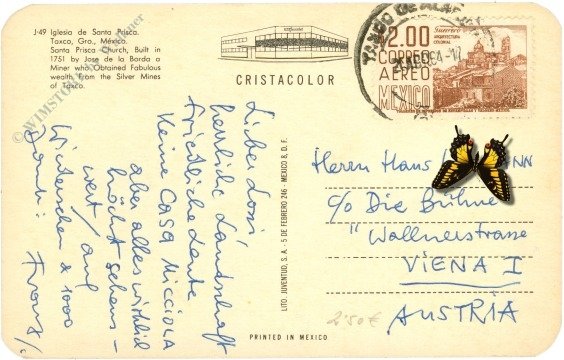 J-49 Iglesia de Santa Prisca.
Taxco, Gro., México.
Santa Prisca Church, Built in
1751 by Jose de la Borda a
Miner who Obtained Fabulous
wealth from the Silver Mines
of Taxco.
CRISTACOLOR
$2.00
CORREO
AEREO
MEXICO
Guerrero
ARQUITECTURA
COLONIAL
Lieber Lossi
herrliche Landschaft
Keine CASA MICCIOLA
aber alles wirklich
höchst sehens-
wert / auf
Wiedersehen & 1000
Franz
LITO JUVENTUD, S.A. - 5 DE FEBRERO 246 - MEXICO 8, D. F.
Herrn Hans
c/o Die Bühne
Wallnerstrasse
VIENA I
AUSTRIA
2.50 €
PRINTED IN MEXICO